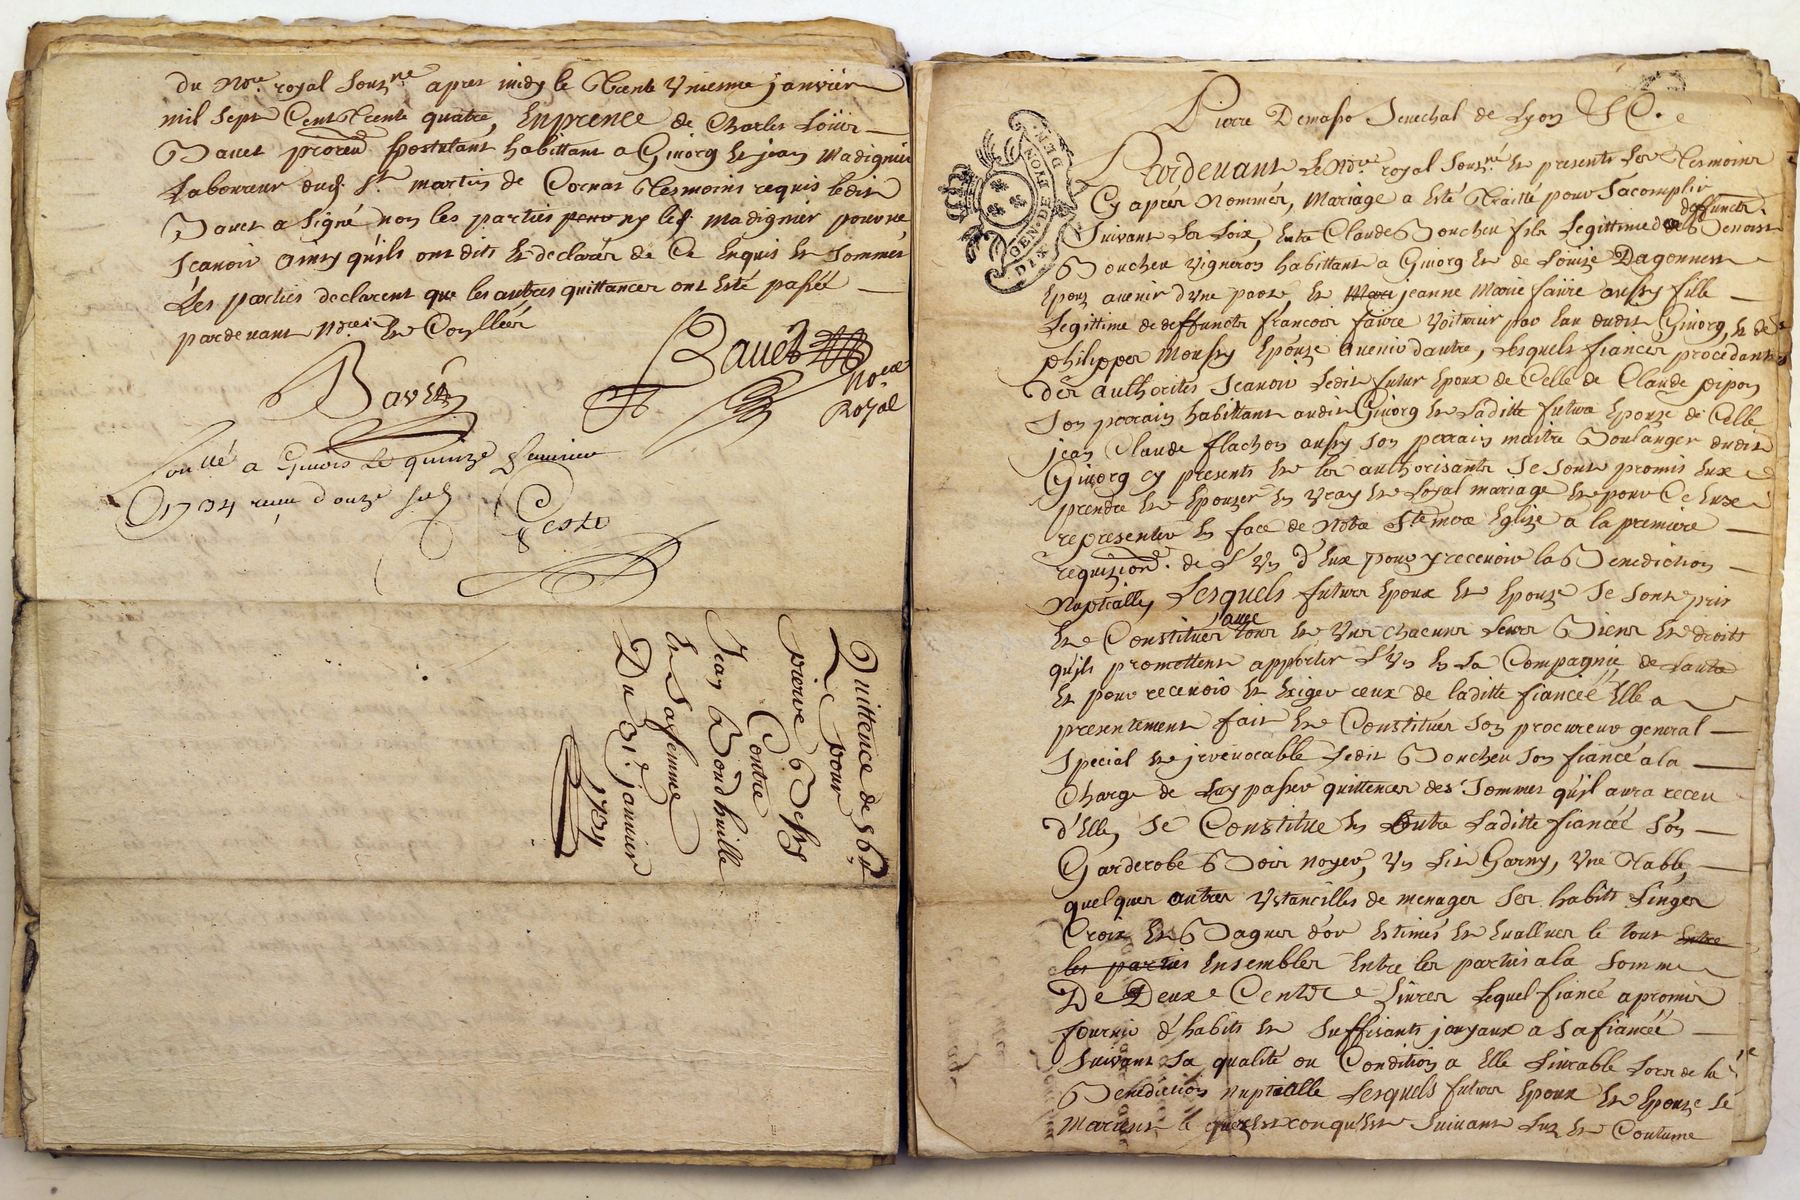 du No.re royal Souz.né apres midy le Trente Unieme janvier
mil Sept Cent Trente quatre, En presence de Charles Loüis
Bavet procud postulant habittant a Givorg Et jean Madignier
Laboureur dud. S.t martin de Cornas Tesmoins requis ledit
Bavet a Signé non les parties ny led. Madignier pour ne
Sçavoir ainsy quils ont dits Et declarés de Ce Enquis Et Sommés
Les parties declarent que les autres quittances ont Esté passéé
pardevant No.res Et Coylleés
Bavet
Bavet
No.re
Royal
Con.llé a Givors Le quinze fevrier
1734 reçu douze sols
Geste
Quittence de 56 lt
pour
pierre
Contre
Jean Bondhuille
Et Safemme
Du 31.e janvier
1734
GEN. DE LYON
DIX DEN.
Pierre Demasso Senechal de Lyon &C.
Pardevant Le No.re royal Souz.né Et presents Les Tesmoins
Cy aprés Nommés, Mariage a Esté Traitté pour S'acomplir
deffunct
Suivant Les Loix, Entre Claude Boucheu fils Legittime de Benoist
Boucheu Vigneron habittant a Givorg Et de Loüize Dagonnest
Epoux avenir d'Une part, Et jeanne Marie faure aussy fille
Legittime de deffuncts françois faure Voiturier par Eau dudit Givorg, Et de
philippes Moussy Epouze avenir dautre, Lesquels fiancés procedants
des authorités Sçavoir Ledit futur Epoux de Celle de Claude pipon
Son parrain habittant audit Givorg Et Laditte future Epouze de Celle
jean Claude flachon aussy Son parrain maitre Boulanger dudit
Givorg cy presents Et les authorisants Se Sont promis Eux
prendre Et Epouzer En Vray Et Loyal mariage Et pour Ce Eux
representer En face de Notre S.te mere Eglize a la premiere
requizion. de L'Un d'Eux pour y recevoir la Benediction
Nuptialle, Lesquels futurs Epoux Et Epouze Se Sont pris
avec
Et Constitués tous Et Uns chacuns Leurs Biens Et droits
quils promettent apporter L'Un En La Compagnie de Lautre
Et pour recevoir Et Exiger ceux de laditte fiancéé Elle a
presentement fait Et Constitués Son procureur general
Special Et jrrevocable Ledit Boucheu Son fiancé a la
Charge de Luy passer quittences des Sommes qu'il aura receu
d'Elle, Se Constitue En Outre Laditte fiancéé Son
Garderobe Bois noyer, Un Lit Garny, Une Table,
quelques autres Ustancilles de menager Ses habits Linges
Croix Et Bagues d'or Estimés Et Evalluer le tout Entre
les parties Ensembles Entre les parties a la Somme
De Deux Cents Livres Lequel fiancé a promis
fournir d'habits Et Suffisants joyaux a Safiancéé
Suivant Sa qualité ou Condition a Elle Livrable Lors de la
Benediction nuptialle Lesquels futurs Epoux Et Epouze Se
Marient Suivant Luz Et Coutume